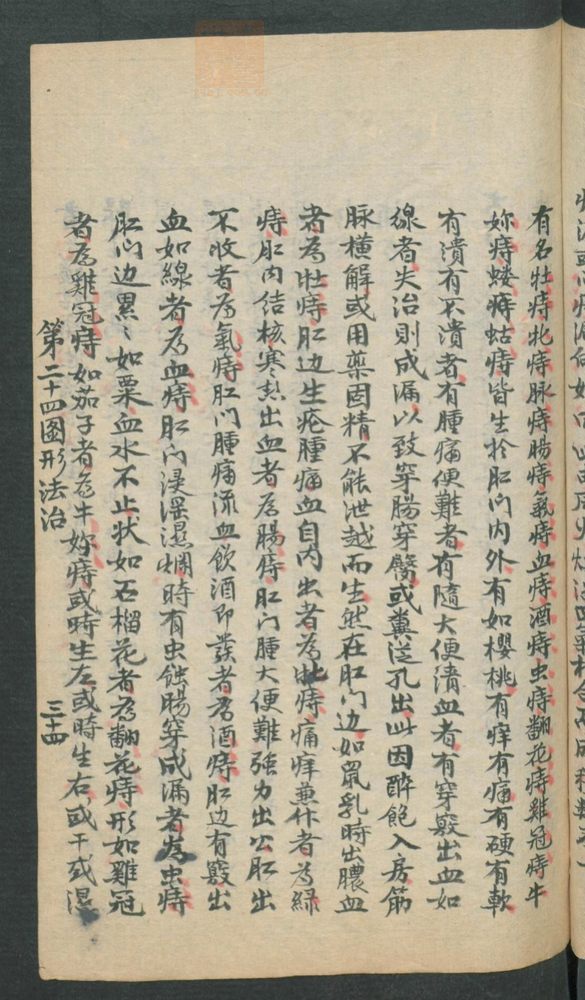 有名牡痔牝痔脉痔腸痔氣痔血痔酒痔虫痔翻花痔雞冠痔牛
妳痔蝼痔蛄痔皆生於肛门内外有如櫻桃有痒有痛有硬有軟
有潰有不潰者有腫痛便難者有隨大便清血者有穿竅出血如
線者失治則成漏以致穿腸穿臀或糞従孔出此因醉飽入房筋
脉横觧或用藥固精不能泄越而生然在肛门边如鼠乳時出膿血
者為牡痔肛边生疮腫痛血自内出者為牝痔痛痒兼作者為綠
痔肛内结核寒热出血者為腸痔肛门腫大便難强力出公肛出
不收者為氣痔肛门腫痛流血飲酒即發者為酒痔肛边有竅出
血如線者為血痔肛门浸滛濕爛時有虫蝕腸穿成漏者為虫痔
肛门边累々如粟血水不止状如石榴花者為翻花痔形如雞冠
者為雞冠痔如茄子者為牛妳痔或時生左或時生右或干或濕
第二十四圖形法治
三十四